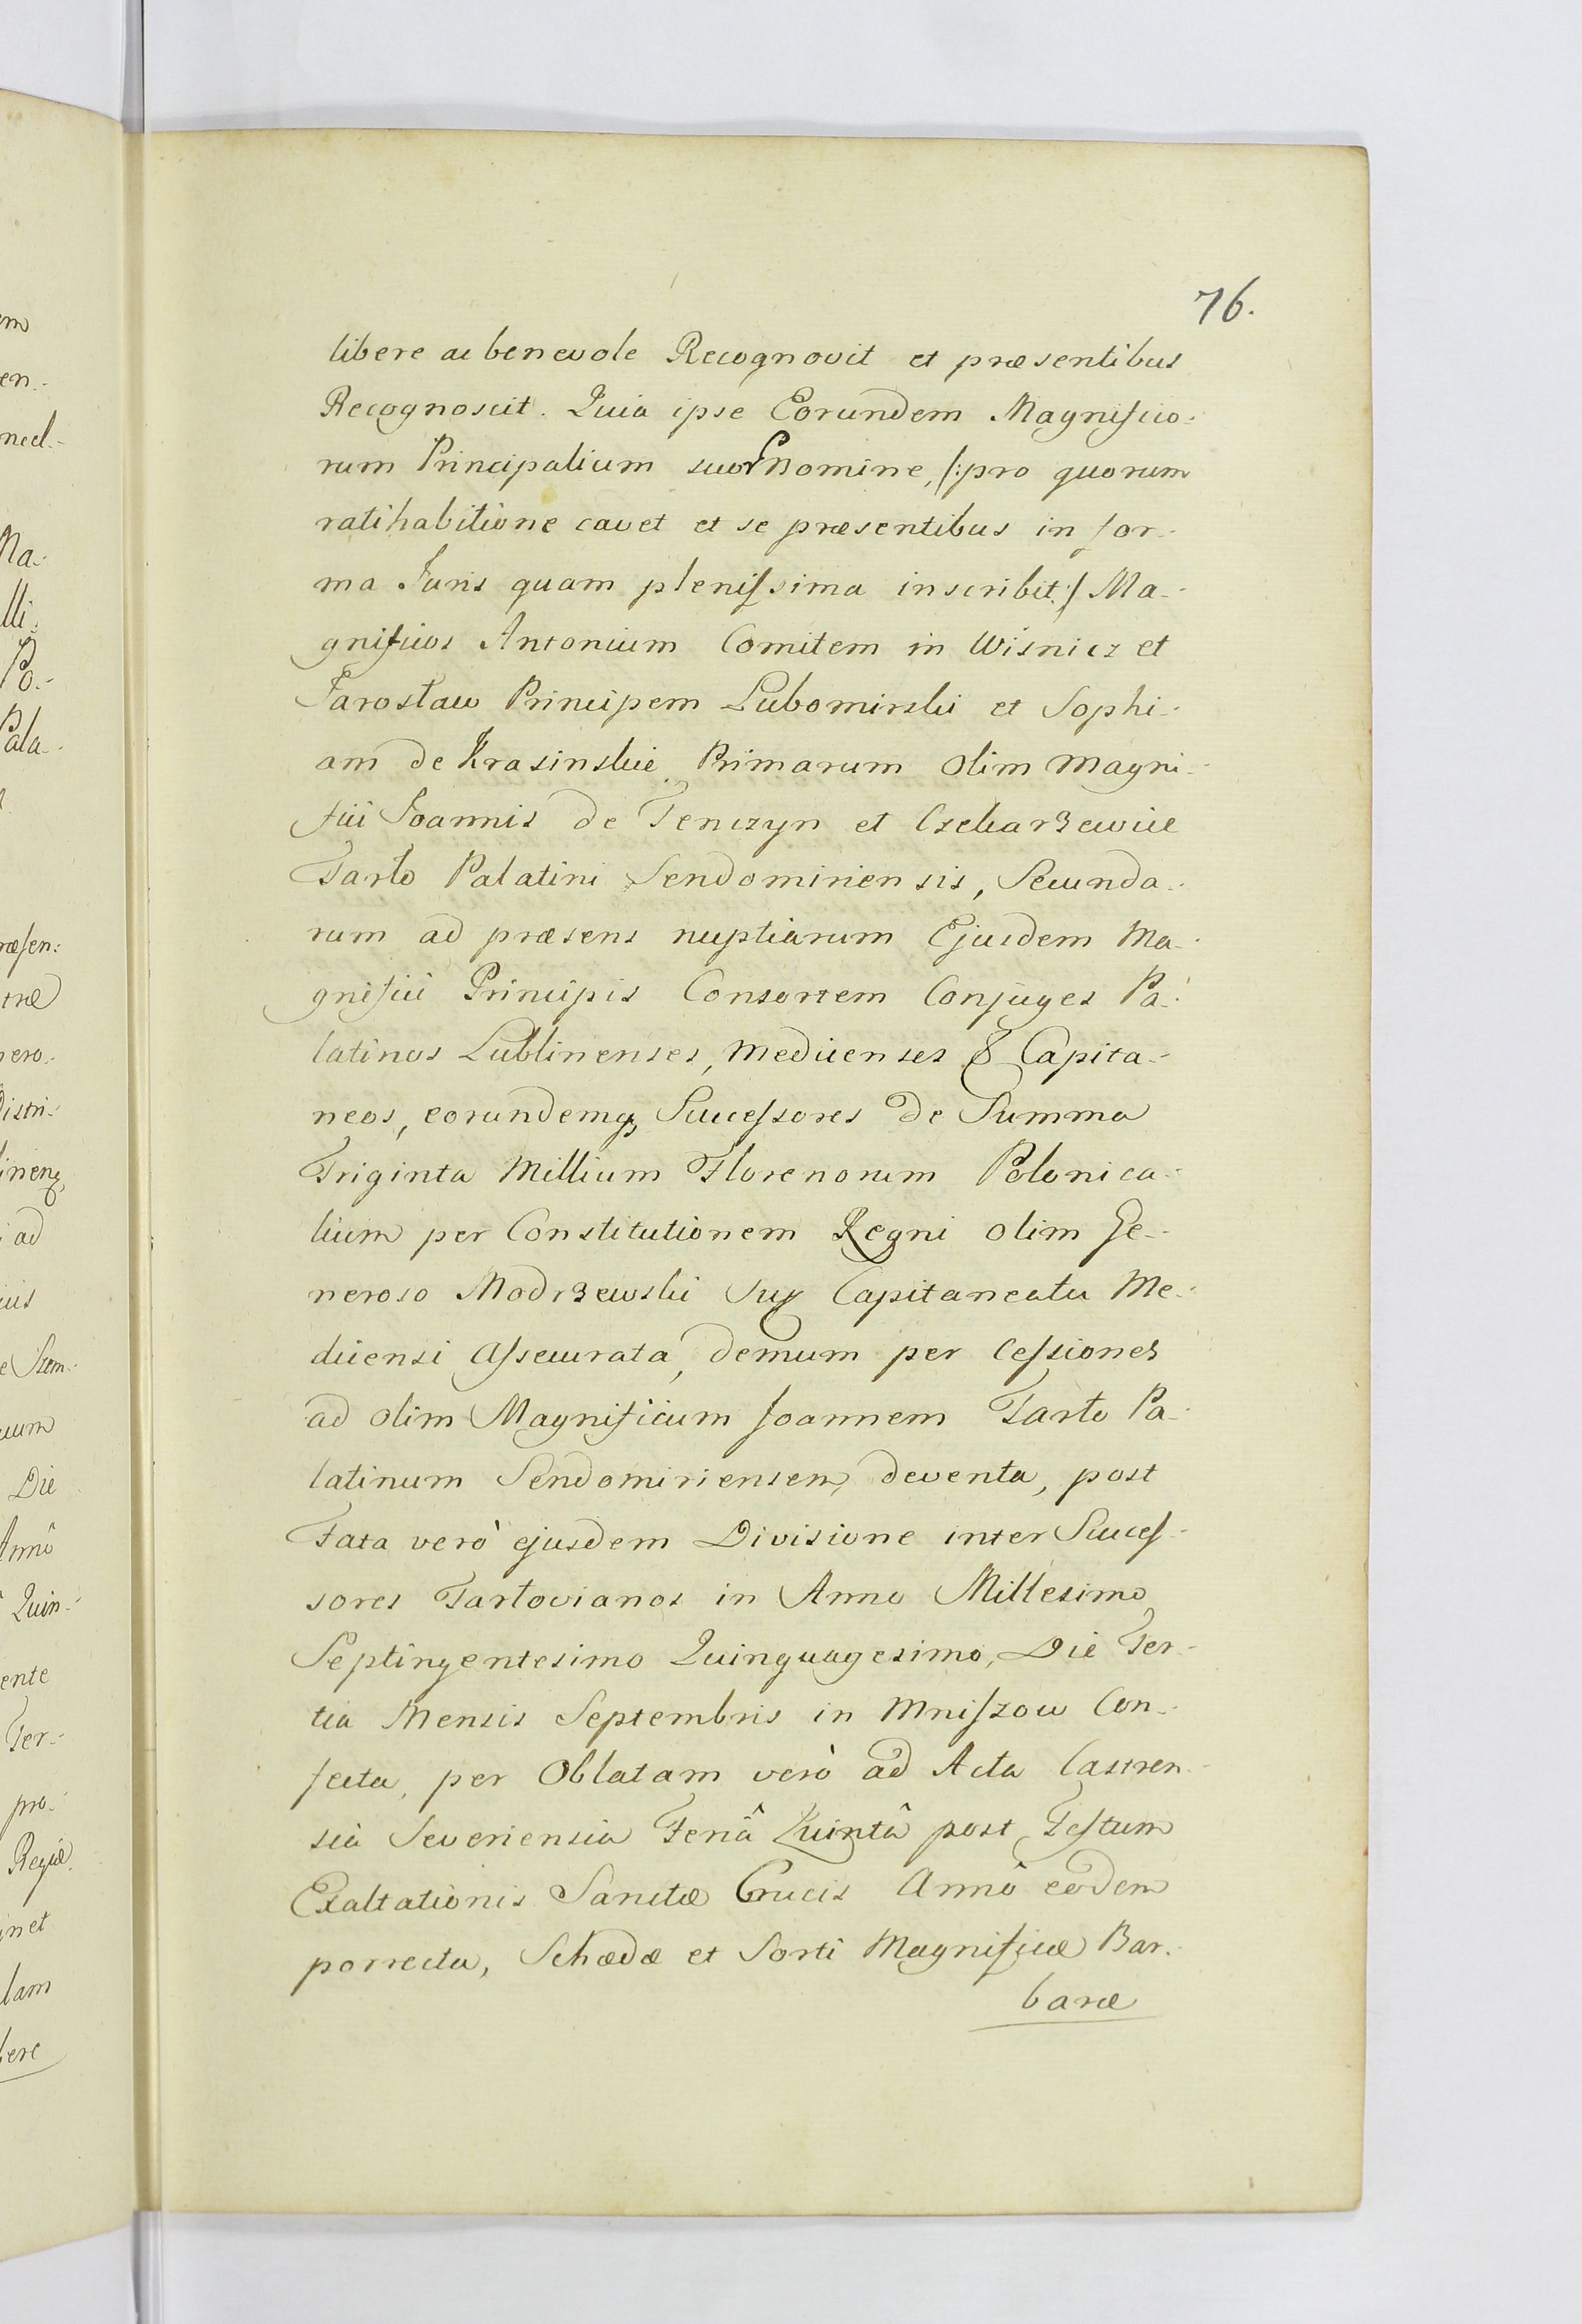 76.
libere ac benevole Recognovit et præsentibus
Recognoscit. Quia ipse Eorundem Magnifico-
rum Principalium suor Nomine, /:pro quorum
ratihabitione cavet et se præsentibus in for-
ma Juris quam plenissima inscribit:/ Ma-
gnificos Antonium Comitem in Wisnicz et
Jarosław Principem Lubomirski et Sophi-
am de Krasinskie Primarum olim Magni-
fici Joannis de Tenczyn et Czekarzewice
Tarło Palatini Sendomiriensis, Secunda-
rum ad præsens nuptiarum Ejusdem Ma-
gnifici Principis Consortem Conjuges Pa-
latinos Lublinenses, Medicenses & Capita-
neos, eorundemq, Successores de Summa
Triginta Millium Florenorum Polonica-
lium per Constitutionem Regni olim Ge-
neroso Modrzewski Sup Capitaneatu Me-
dicensi Assecurata, demum per Cessiones
ad olim Magnificum Joannem Tarło Pa-
latinum Sendomiriensem, deventa, post
Fata verò ejusdem Divisione inter Succes-
sores Tarłovianos in Anno Millesimo
Septingentesimo Quinquagesimo, Die Ter-
tia Mensis Septembris in Mniszow Con-
fecta, per Oblatam verò ad Acta Castren-
sia Severiensia Feriâ Quintâ post Festum
Exaltationis Sanctæ Crucis Annô eodem
porrecta, Schædæ et Sorti Magnificæ Bar-
baræ